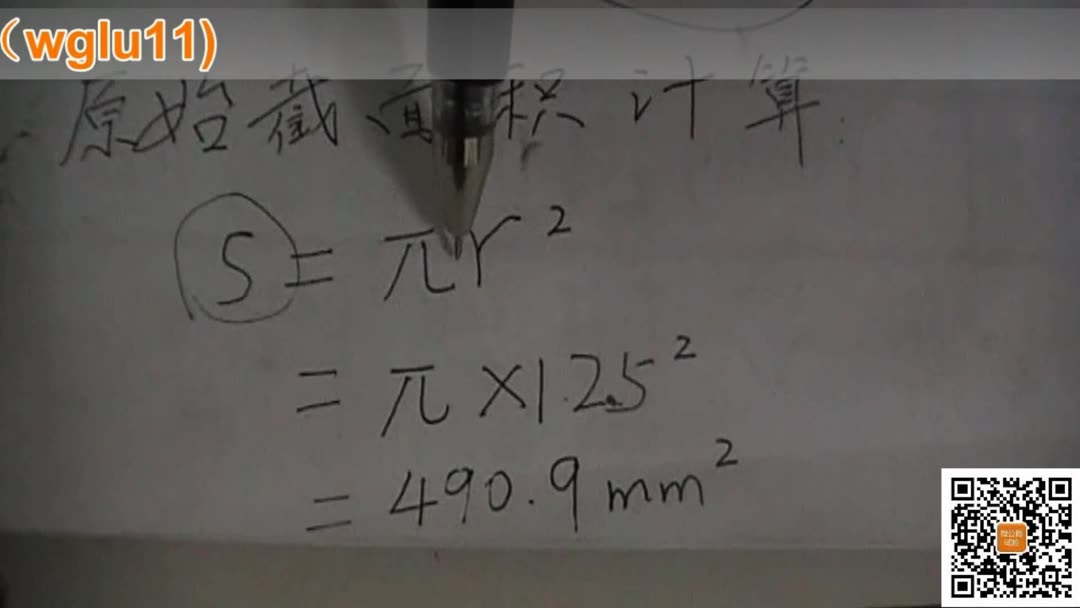 （wglu11)
原始截面积计算：
S = πr²
= π×12.5²
= 490.9mm²